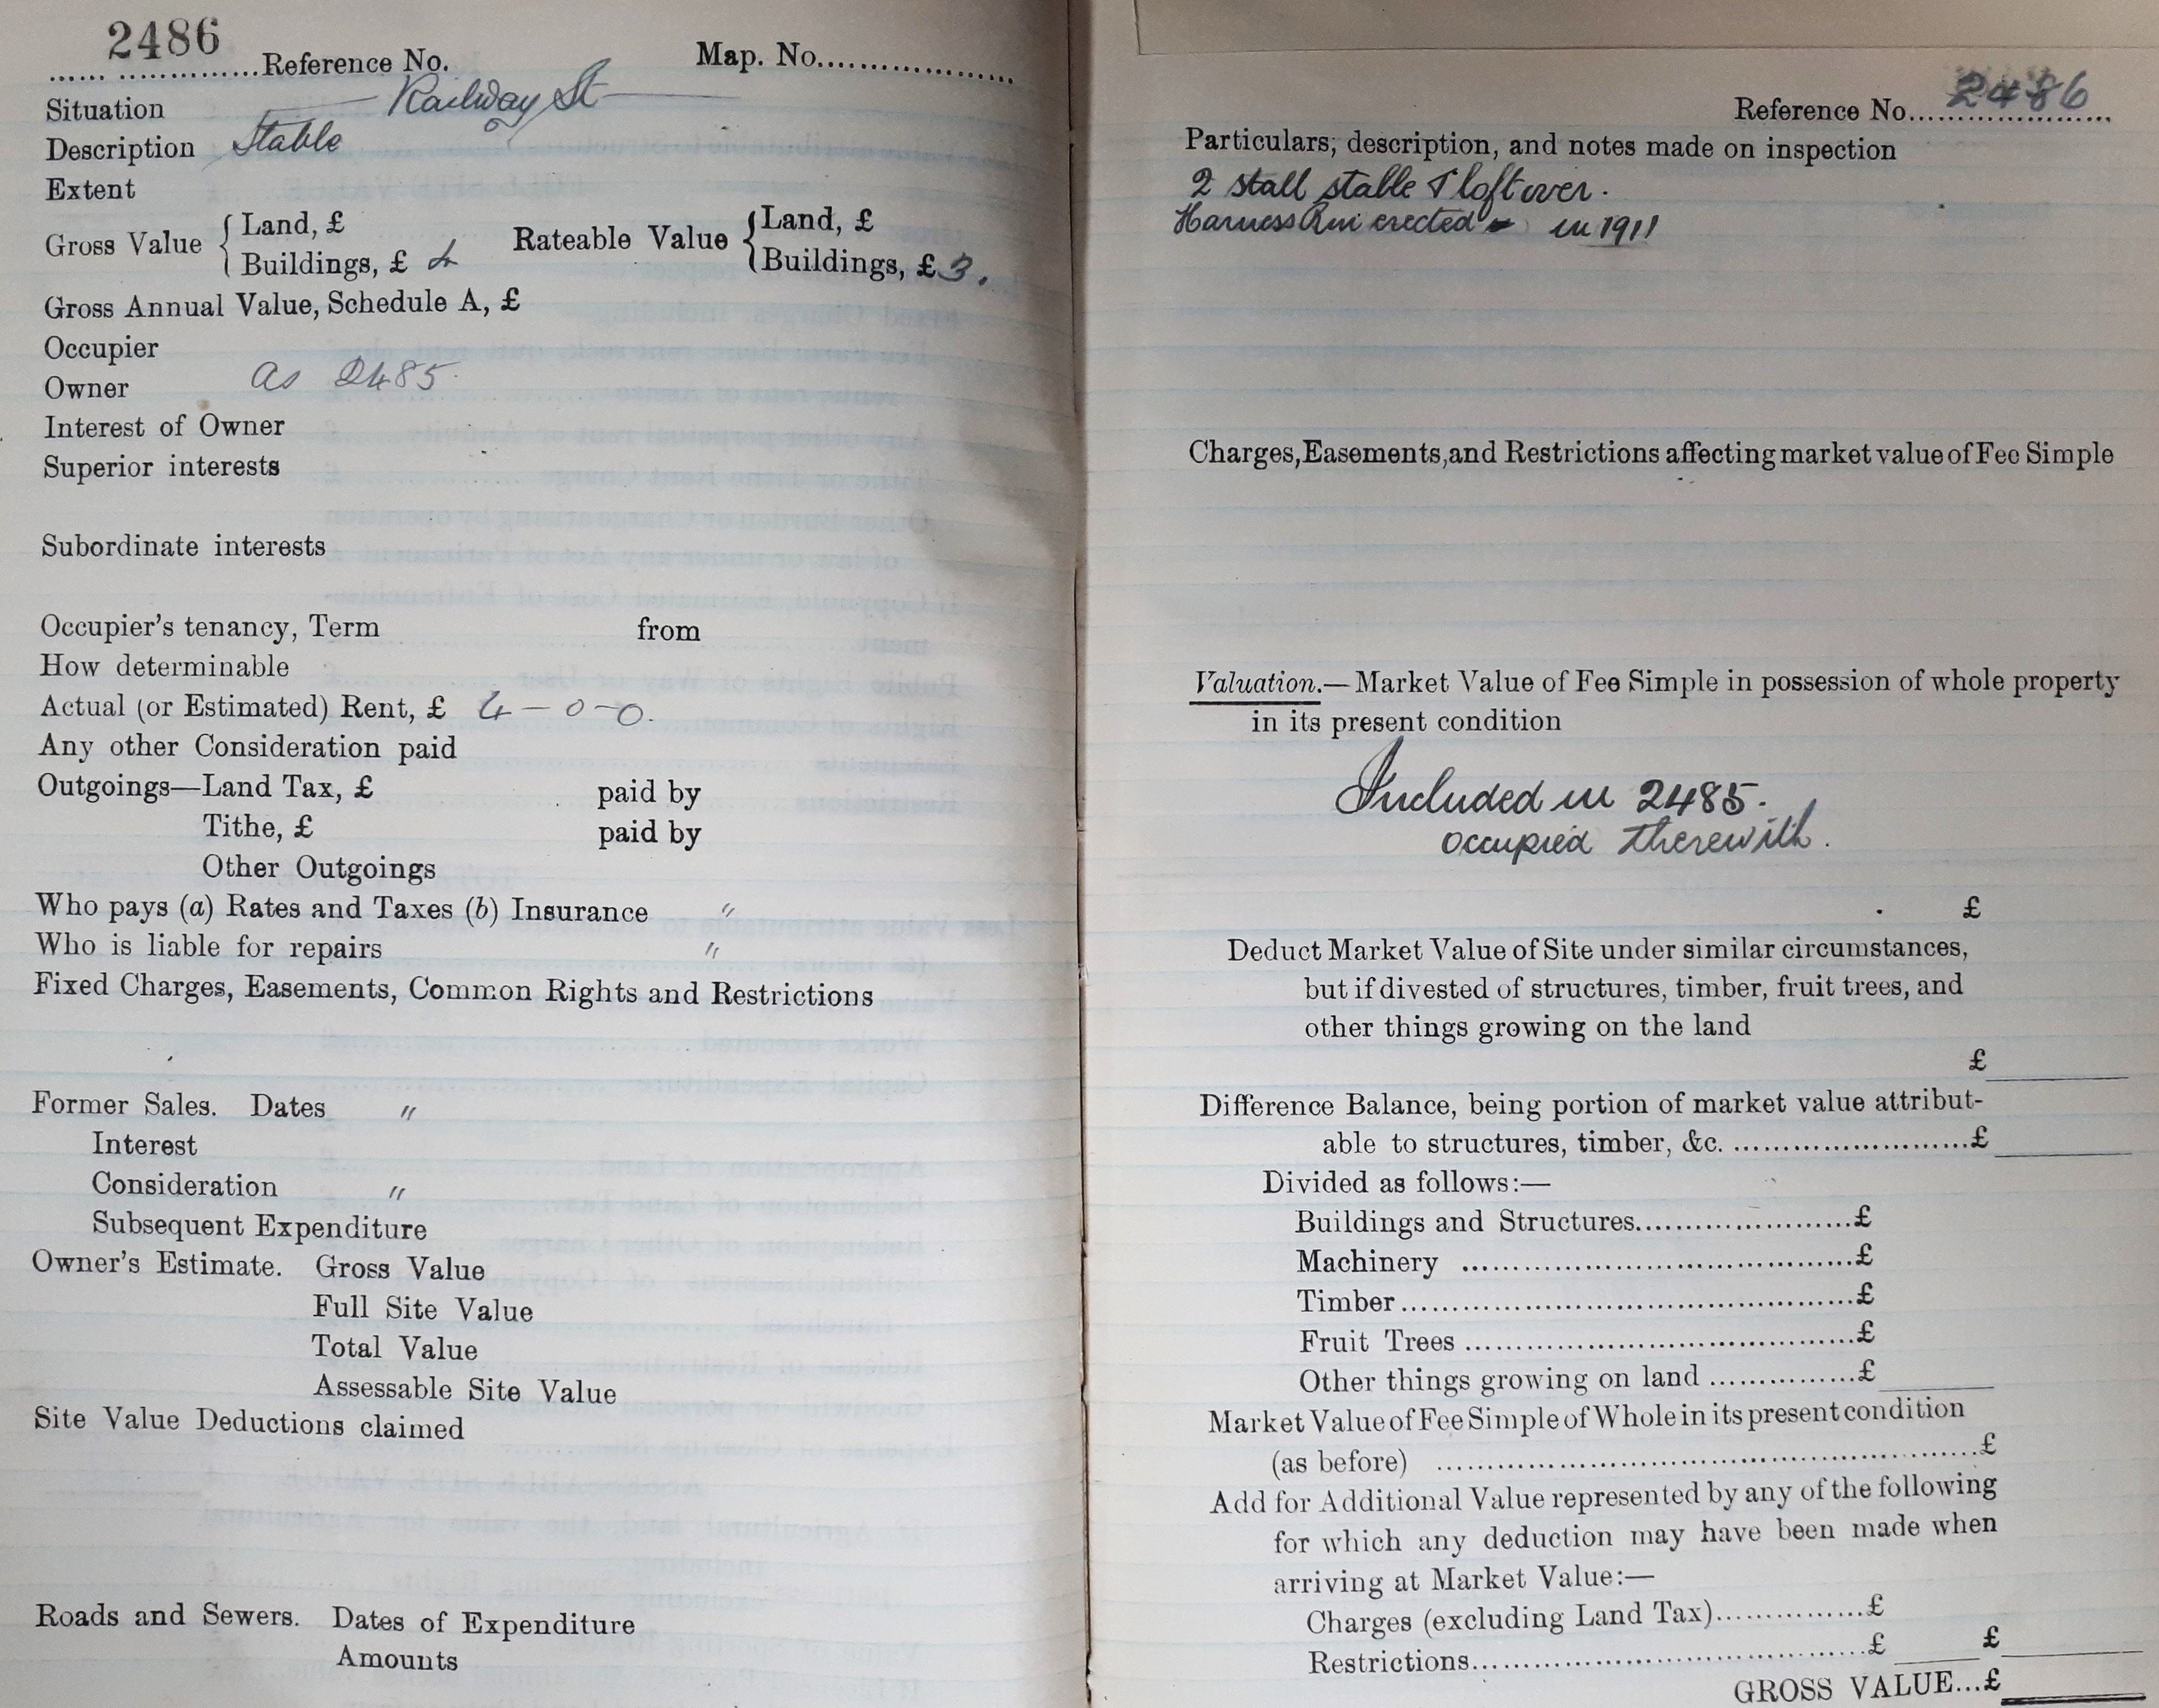 2486
Reference No. Map. No.
Situation Railway St
Description Stable
Extent
Gross Value { Land, £ Rateable Value { Land, £
Buildings, £ 4 Buildings, £ 3.
Gross Annual Value, Schedule A, £
Occupier
Owner as 2485.
Interest of Owner
Superior interests
Subordinate interests
Occupier's tenancy, Term from
How determinable
Actual (or Estimated) Rent, £ 4 - 0 - 0.
Any other Consideration paid
Outgoings—Land Tax, £ paid by
Tithe, £ paid by
Other Outgoings
Who pays (a) Rates and Taxes (b) Insurance "
Who is liable for repairs "
Fixed Charges, Easements, Common Rights and Restrictions
Former Sales. Dates "
Interest
Consideration "
Subsequent Expenditure
Owner's Estimate. Gross Value
Full Site Value
Total Value
Assessable Site Value
Site Value Deductions claimed
Roads and Sewers. Dates of Expenditure
Amounts
Reference No. 2486
Particulars, description, and notes made on inspection
2 stall stable & loft over.
Harness Rm erected in 1911
Charges, Easements, and Restrictions affecting market value of Fee Simple
Valuation.—Market Value of Fee Simple in possession of whole property
in its present condition
Included in 2485.
occupied therewith.
£
Deduct Market Value of Site under similar circumstances,
but if divested of structures, timber, fruit trees, and
other things growing on the land
£
Difference Balance, being portion of market value attribut-
able to structures, timber, &c. £
Divided as follows:—
Buildings and Structures £
Machinery £
Timber £
Fruit Trees £
Other things growing on land £
Market Value of Fee Simple of Whole in its present condition
(as before) £
Add for Additional Value represented by any of the following
for which any deduction may have been made when
arriving at Market Value:—
Charges (excluding Land Tax) £
Restrictions £ £
GROSS VALUE... £